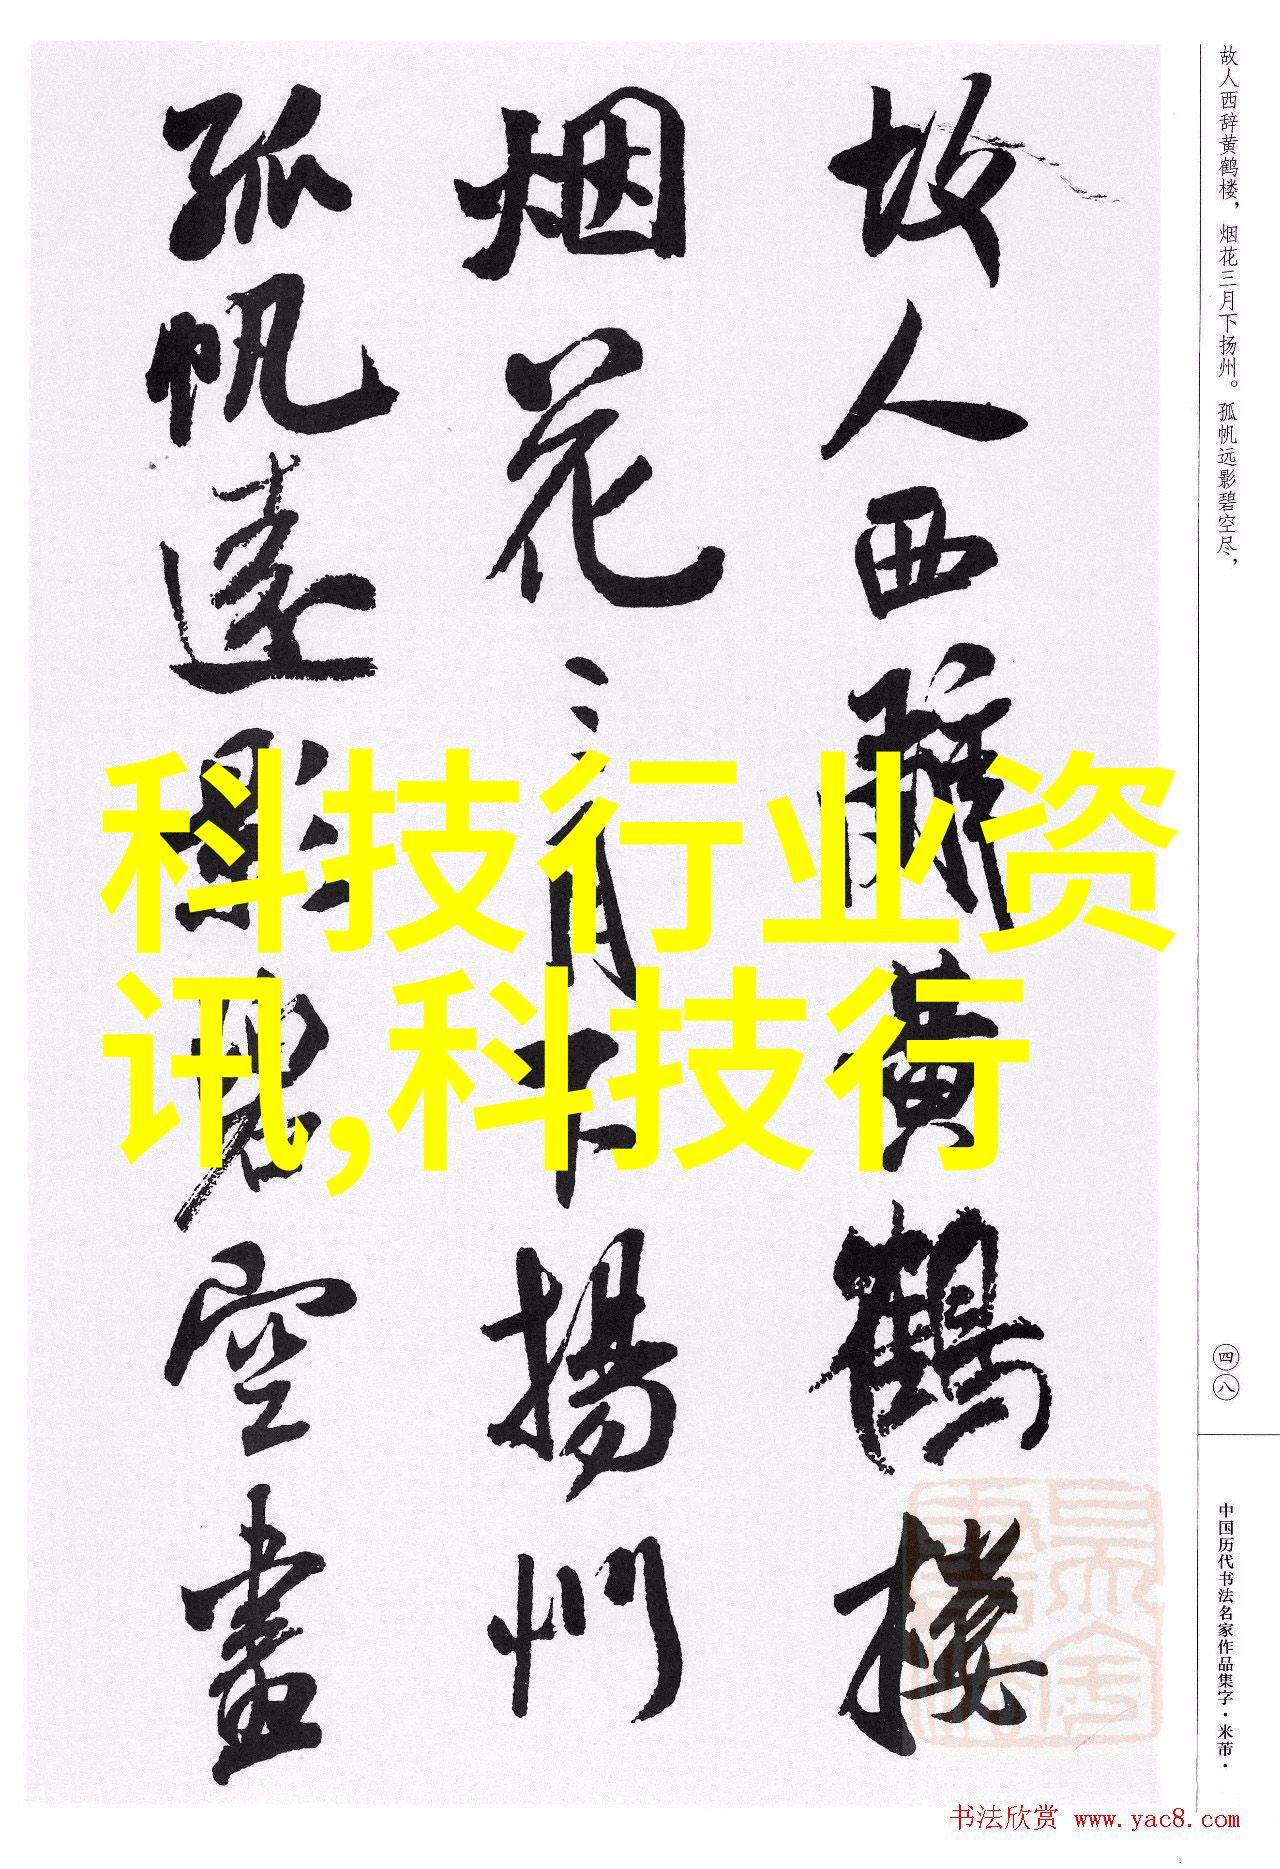 故人西辞黄鹤楼，烟花三月下扬州。孤帆远影碧空尽，
故人西辭黄鶴楼
烟花三月下揚州
孤帆遠影碧空盡
科技行业资
讯,科技行
四八
中国历代书法名家作品集字·米芾·
书法欣赏 www.yac8.com